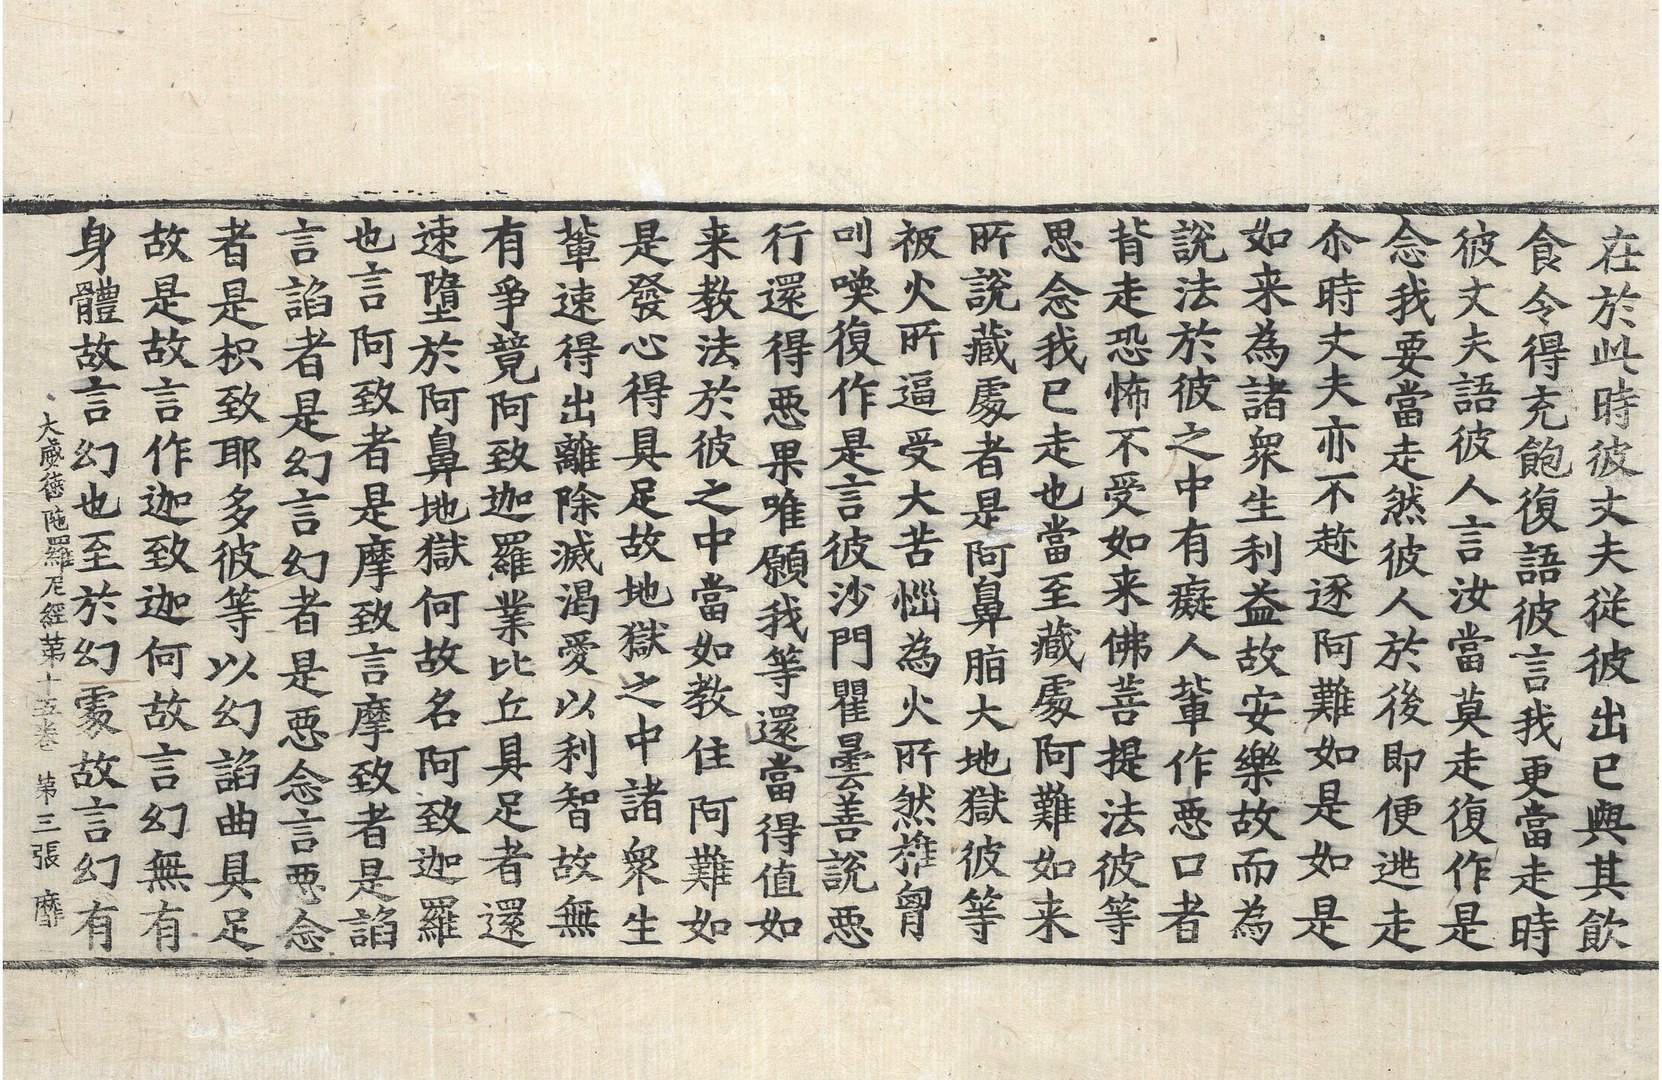 在於此時彼丈夫從彼出已與其飲
食令得充飽復語彼言我更當走時
彼丈夫語彼人言汝當莫走復作是
念我要當走然彼人於後即便逃走
尒時丈夫亦不趂逐阿難如是如是
如来為諸衆生利益故安樂故而為
說法於彼之中有癡人軰作惡口者
背走恐怖不受如来佛菩提法彼等
思念我已走也當至藏處阿難如来
所說藏處者是阿鼻脂大地獄彼等
被火所逼受大苦惱為火所然搥胷
叫喚復作是言彼沙門瞿曇善說惡
行還得惡果唯願我等還當得值如
来教法於彼之中當如教住阿難如
是發心得具足故地獄之中諸衆生
軰速得出離除滅渴愛以利智故無
有爭競阿致迦羅業比丘具足者還
速墮於阿鼻地獄何故名阿致迦羅
也言阿致者是摩致言摩致者是諂
言諂者是幻言幻者是惡念言惡念
者是枳致耶多彼等以幻諂曲具足
故是故言作迦致迦何故言幻無有
身體故言幻也至於幻處故言幻有
大威德陁羅尼經苐十五卷 苐三張 靡